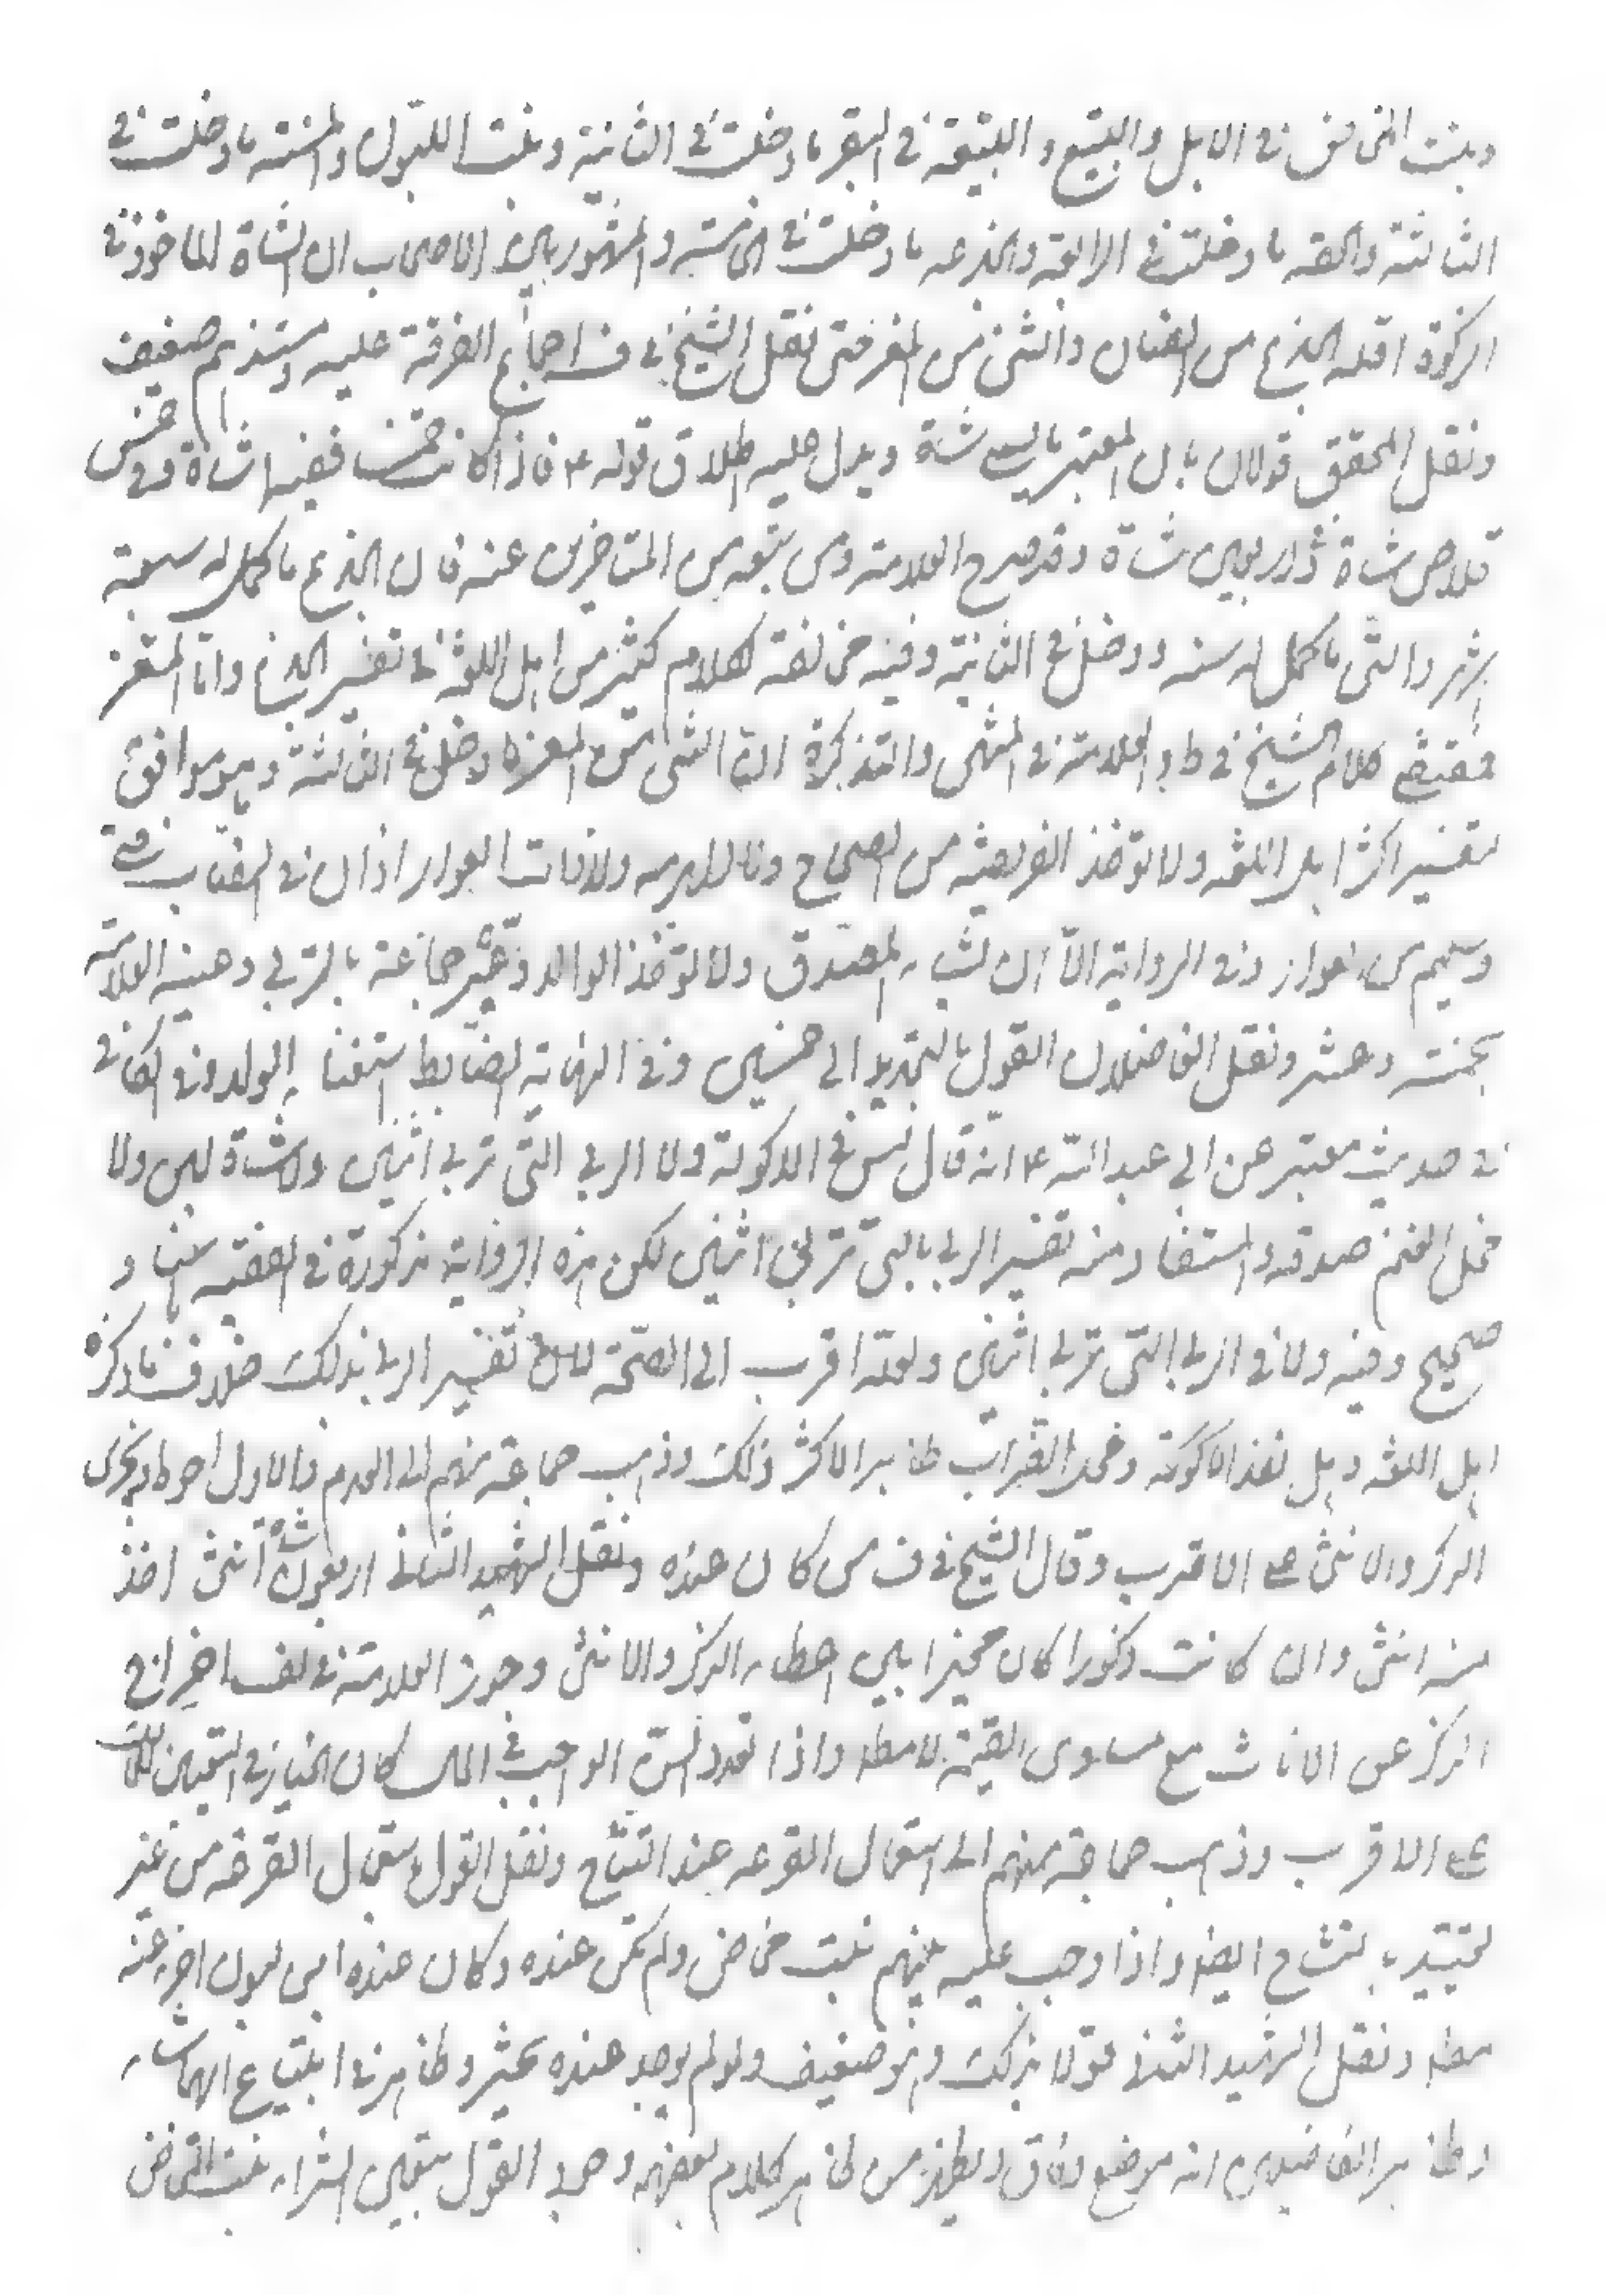 وبنت المخاض في الابل والتبيع والتبيعة في البقر ما دخلت في الثانية وبنت اللبون والمسنة ما دخلت في
الثالثة والحقه ما دخلت في الرابعة والجذعه ما دخلت في الخامسة والمشهور بين الاصحاب ان الشاة الماخوذة في
الزكوة اقله الجذع من الضان والثنى من المعز حتى نقل الشيخ في ف اجماع الفرقة عليه ومستندهم ضعيف
ونقل المحقق قولا بان المعتبر ما يسمى شاة ويدل عليه اطلاق قوله ع فاذا كانت خمسا ففيها شاة وفي خمس
قلاص شاة وفي اربعين شاة وقد صرح العلامة ومن تبعه من المتاخرين عنه بان الجذع ما كمل له سبعة
اشهر والثنى ما كمل له سنه ودخل في الثانية وفيه مخالفة لكلام كثير من اهل اللغة في تفسير الجذع واما المعز
فمقتضى كلام الشيخ في ط والعلامة في المنتهى والتذكرة ان الثنى من المعز ما دخل في الثالثة وهو موافق
لتفسير اكثر اهل اللغه ولا تؤخذ المريضه من الصحاح ولا الهرمه ولا ذات العوار اذا كان في النصاب فتية
وسليم من العوار وفي الرواية الا ان يشاء المصدق ولا تؤخذ الوالد وعبر جماعة بالربى وحده العلامة
بخمسة وعشر ونقل الفاضلان القول بالتحديد الى خمسين وفي النهاية الضابط استغناء الولد وفي الكافي
في حديث معتبر عن ابي عبد الله ع انه قال ليس في الاكولة ولا الربى التي تربى اثنين ولا شاة لبن ولا
فحل الغنم صدقه والمستفاد منه تفسير الربى بالتي تربي اثنين لكن هذه الرواية مذكورة في الفقيه باسناد
صحيح وفيه ولا في الربى التي تربى اثنين ولعله اقرب الى الصحة لان تفسير الربى بذلك خلاف ما ذكره
اهل اللغه وهل تعد الاكولة وفحل الضراب ظاهر الاكثر ذلك وذهب جماعة منهم الى العدم والاول احوط ويجزى
الذكر والانثى على الاقرب وقال الشيخ في ف من كان عنده ونقل الشهيد الثاني اربعون شاة انثى اخذ
منه انثى وان كانت ذكورا كان مخيرا بين اعطاء الذكر والانثى وجوز العلامة في لف اخراج
الذكر عن الاناث مع تساوى القيمة لا مطلقا واذا تعدد السن الواجب في المال كان الخيار في التعيين للمالك
على الاقرب وذهب جماعة منهم الى استعمال القرعه عند التشاح ونقل القول باستعمال القرعه من غير
تقييد بالتشاح ايضا واذا وجب عليه منهم بنت مخاض ولم تكن عنده وكان عنده ابن لبون اجزء عنه
مطلقا ونقل الشهيد الثاني قولا بذلك وهو ضعيف ولو لم يوجد عنده تخير وظاهر في ابتياع ايهما شاء
وظاهر الفاضلين انه موضع وفاق ويظهر من ظاهر كلام بعضهم وجود القول بتعين شراء بنت المخاض